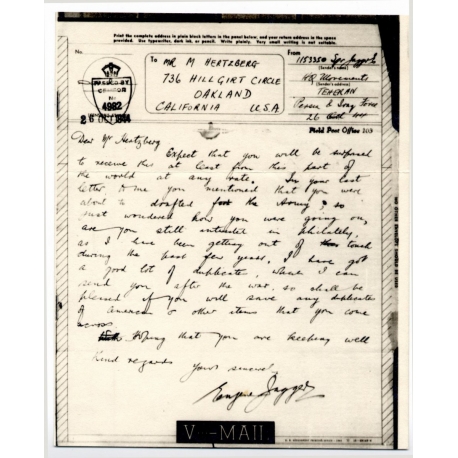 Print the complete address in plain block letters in the panel below, and your return address in the space
provided. Use typewriter, dark ink, or pencil. Write plainly. Very small writing is not suitable.
No.
PASSED BY
CENSOR
No
4982
26 OCT 1944
To
MR M HERTZBERG
736 HILLGIRT CIRCLE
OAKLAND
CALIFORNIA U.S.A.
From
1153350 Spr Jagger
(Sender's name)
HQ Movements
(Sender's address)
TEHERAN
Persia & Iraq Force
26 Oct 44
Field Post Office 103
Dear Mr Hertzberg
Expect that you will be surprised
to receive this at least from this part of
the world at any rate. In your last
letter to me you mentioned that you were
about to drafted for the Army, so
just wondered how you were going on,
are you still interested in philately,
as I have been getting out of touch
during the past few years. I have got
a good lot of duplicates, which I can
send you after the war. so shall be
pleased if you will save any duplicates
of America & other items that you come
across.
Hoping that you are keeping well
Kind regards
Yours sincerely
Eugene Jagger
V···—MAIL